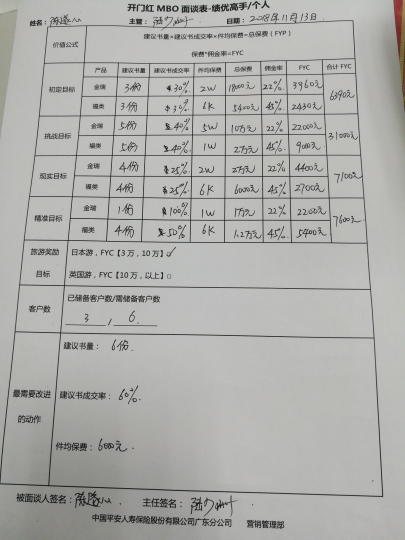 开门红 MBO 面谈表-绩优高手/个人
姓名： 主管： 日期：2018年11月13日.
价值公式 建议书量*建议书成交率*件均保费=总保费（FYP）
保费*佣金率=FYC
产品 建议书量 建议书成交率 件均保费 总保费 佣金率 FYC 合计 FYC
初定目标 金瑞 3份 30% 2W 18000 22% 3960元 6390元
福类 3份 30% 6K 5400元 45% 2430元
挑战目标 金瑞 5份 40% 5W 10万元 22% 22000元 31000元
福类 5份 40% 1W 2万元 45% 9000元
现实目标 金瑞 4份 25% 2W 2万元 22% 4400元 7100元
福类 4份 25% 6K 6000元 45% 2700元
精准目标 金瑞 1份 100% 1W 1万元 22% 2200元 7600元
福类 4份 50% 6K 1.2万元 45% 5400元
旅游奖励 目标 日本游，FYC【3 万，10 万】□✓
英国游，FYC【10 万，以上】□
客户数 已储备客户数/需储备客户数
3 / 6
最需要改进的动作 建议书量： 6份
建议书成交率：60%.
件均保费：6000元
被面谈人签名： 主任签名：
中国平安人寿保险股份有限公司广东分公司 营销管理部